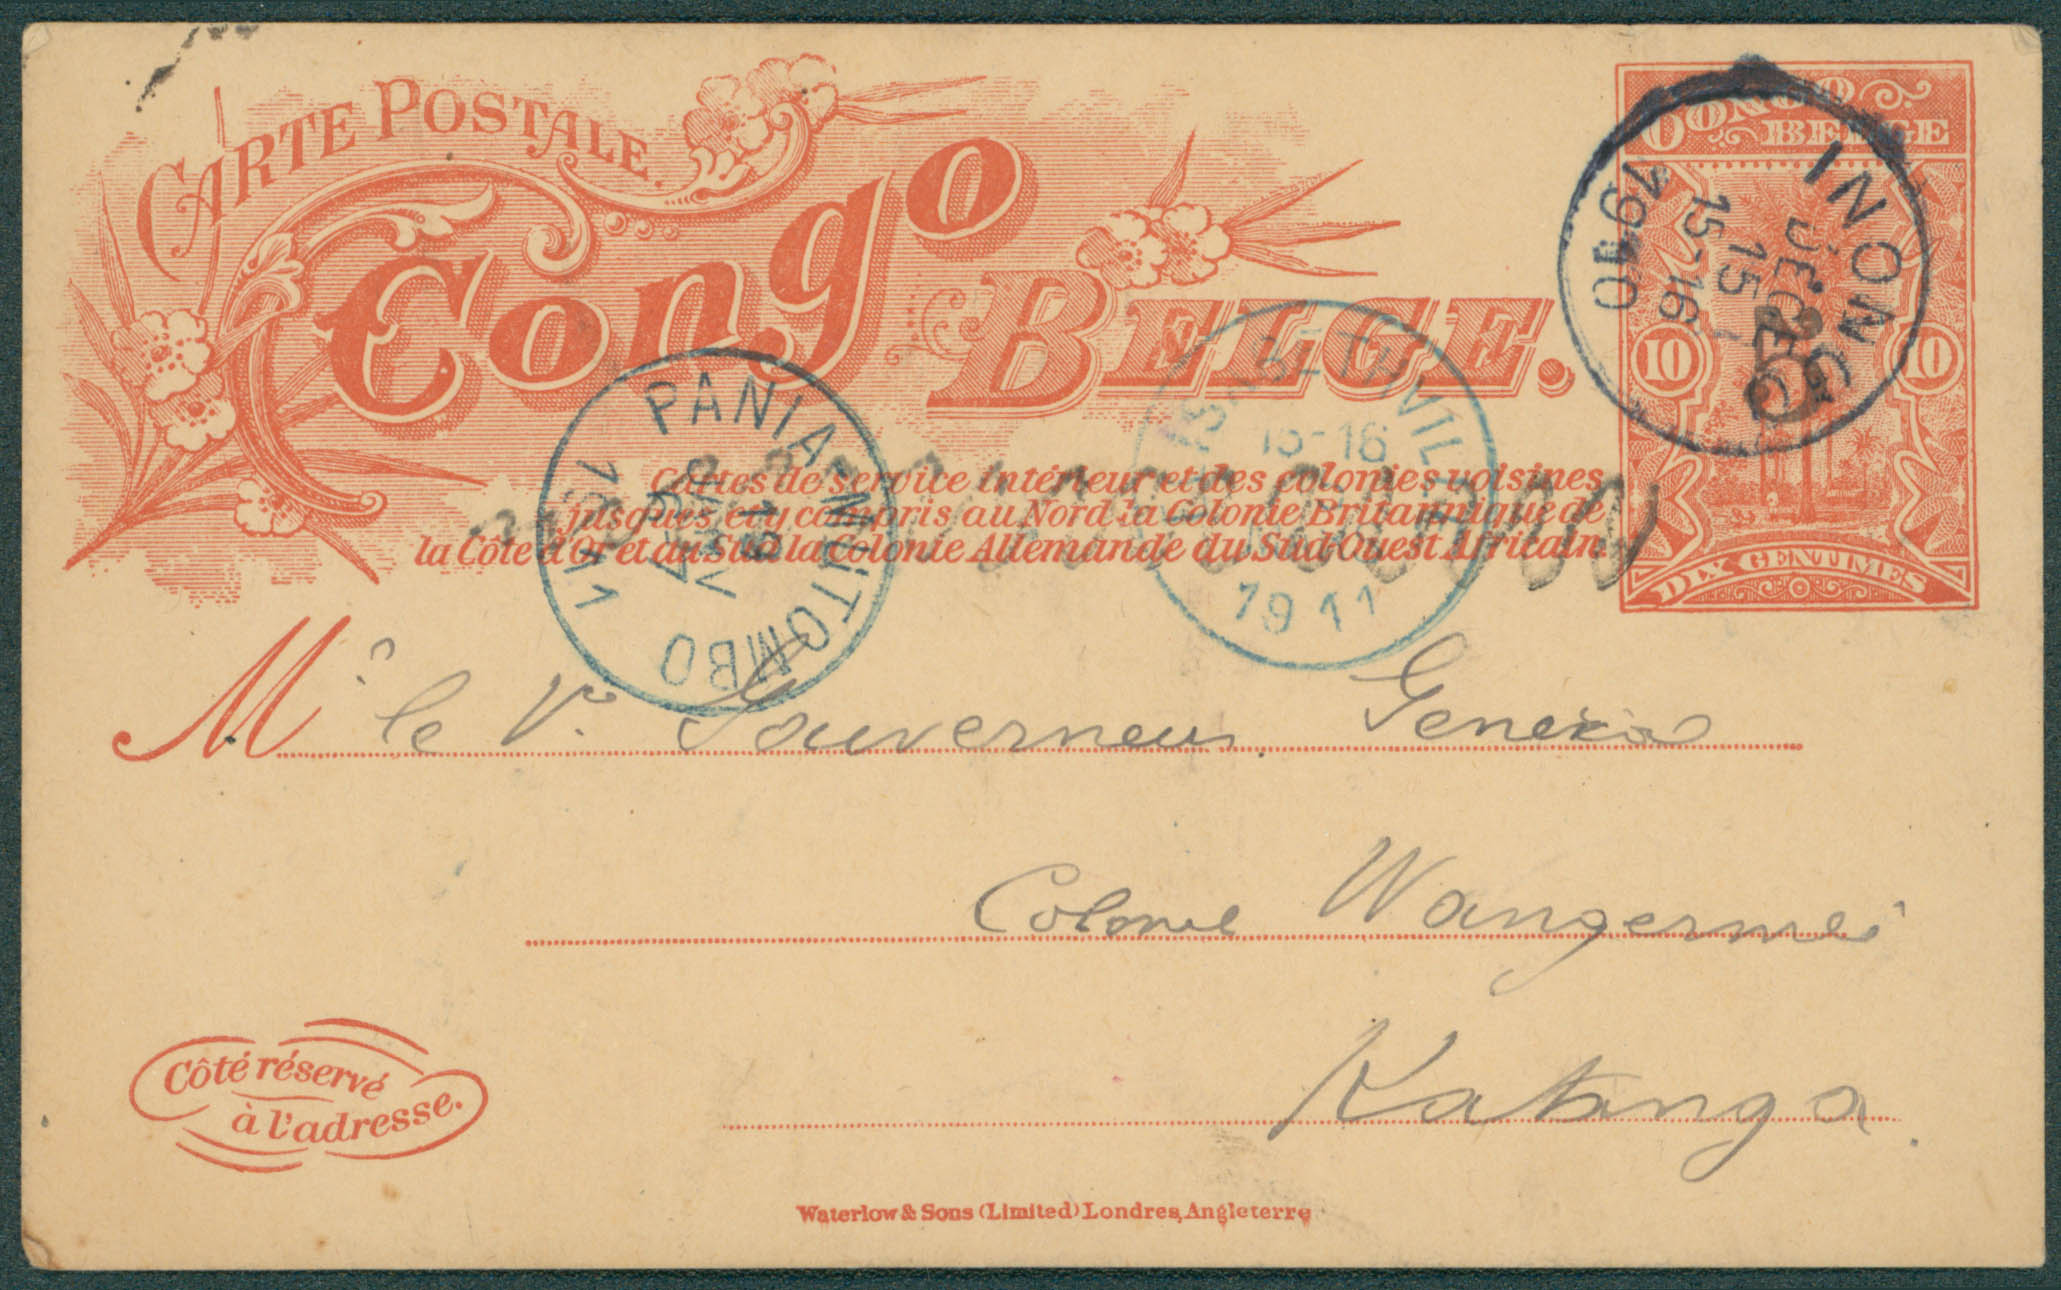 CARTE POSTALE.
Congo
BELGE.
Cartes de service intérieur et des colonies voisines
jusques et y compris au Nord la Colonie Britannique de
la Côte d'Or et au Sud la Colonie Allemande du Sud Ouest Africain.
CONGO
BELGE
10 10
DIX CENTIMES
INONGO
DÉCE
15
15-16
1910
PANIA-MUTOMBO
19
JANV
1911
15-16
1911
Mr le V. Gouverneur Général
Colonel Wangermée
Katanga.
Côté réservé
à l'adresse.
Waterlow & Sons (Limited) Londres, Angleterre